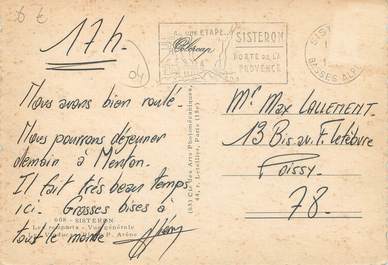 17h.
04
UNE ETAPE
SISTERON
PORTE DE LA
PROVENCE
BASSES ALP
Nous avons bien roulé.
Nous pourrons déjeuner
demain à Menton.
Il fait très beau temps
ici. Grosses bises à
tout le monde
608 - SISTERON
Les remparts - Vue générale
(SS) Cie des Arts Photomécaniques,
44, r. Letellier, Paris (15e)
Mr Max LALLEMENT
13 Bis av. F. Lefèbvre
Poissy
78.